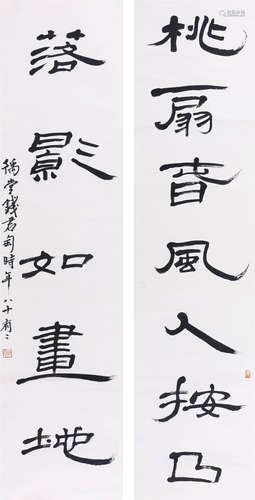 桃扇風人按
落影如畫地
豫堂錢君匋時年八十有二